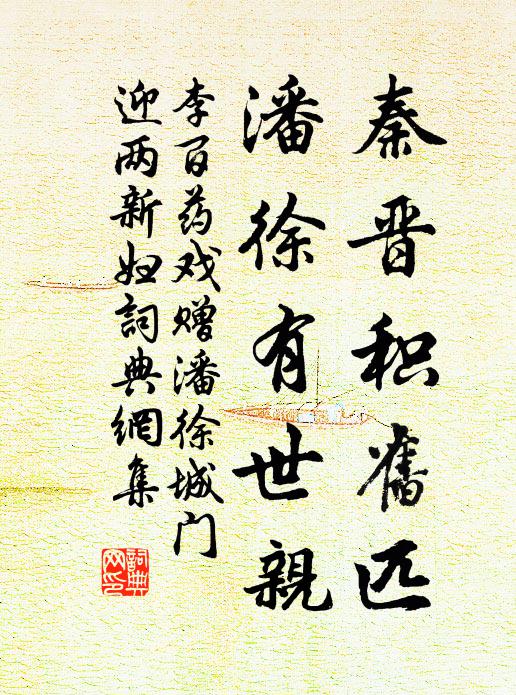 秦晋积旧匹
潘徐有世親
李百药戏赠潘徐城门
迎两新妇詞典網集
詞典
网印